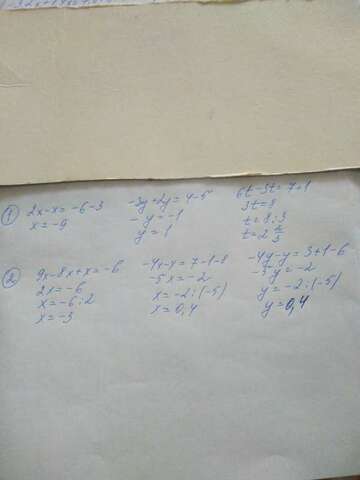 ① 2x-x=-6-3 -3y+2y=4-5 6t-3t=7+1
x=-9 -y=-1 3t=8
y=1 t=8:3
t=2 2/3
② 9x-8x+x=-6 -4x-x=7-1-8 -4y-y=3+1-6
2x=-6 -5x=-2 -5y=-2
x=-6:2 x=-2:(-5) y=-2:(-5)
x=-3 x=0,4 y=0,4